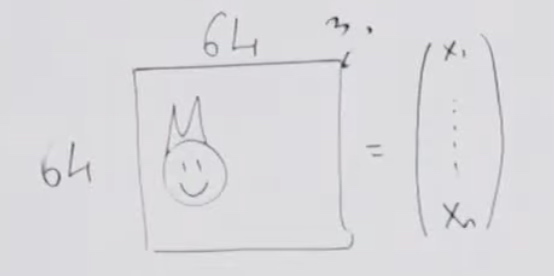 64
3.
64
=
x₁
xₙ